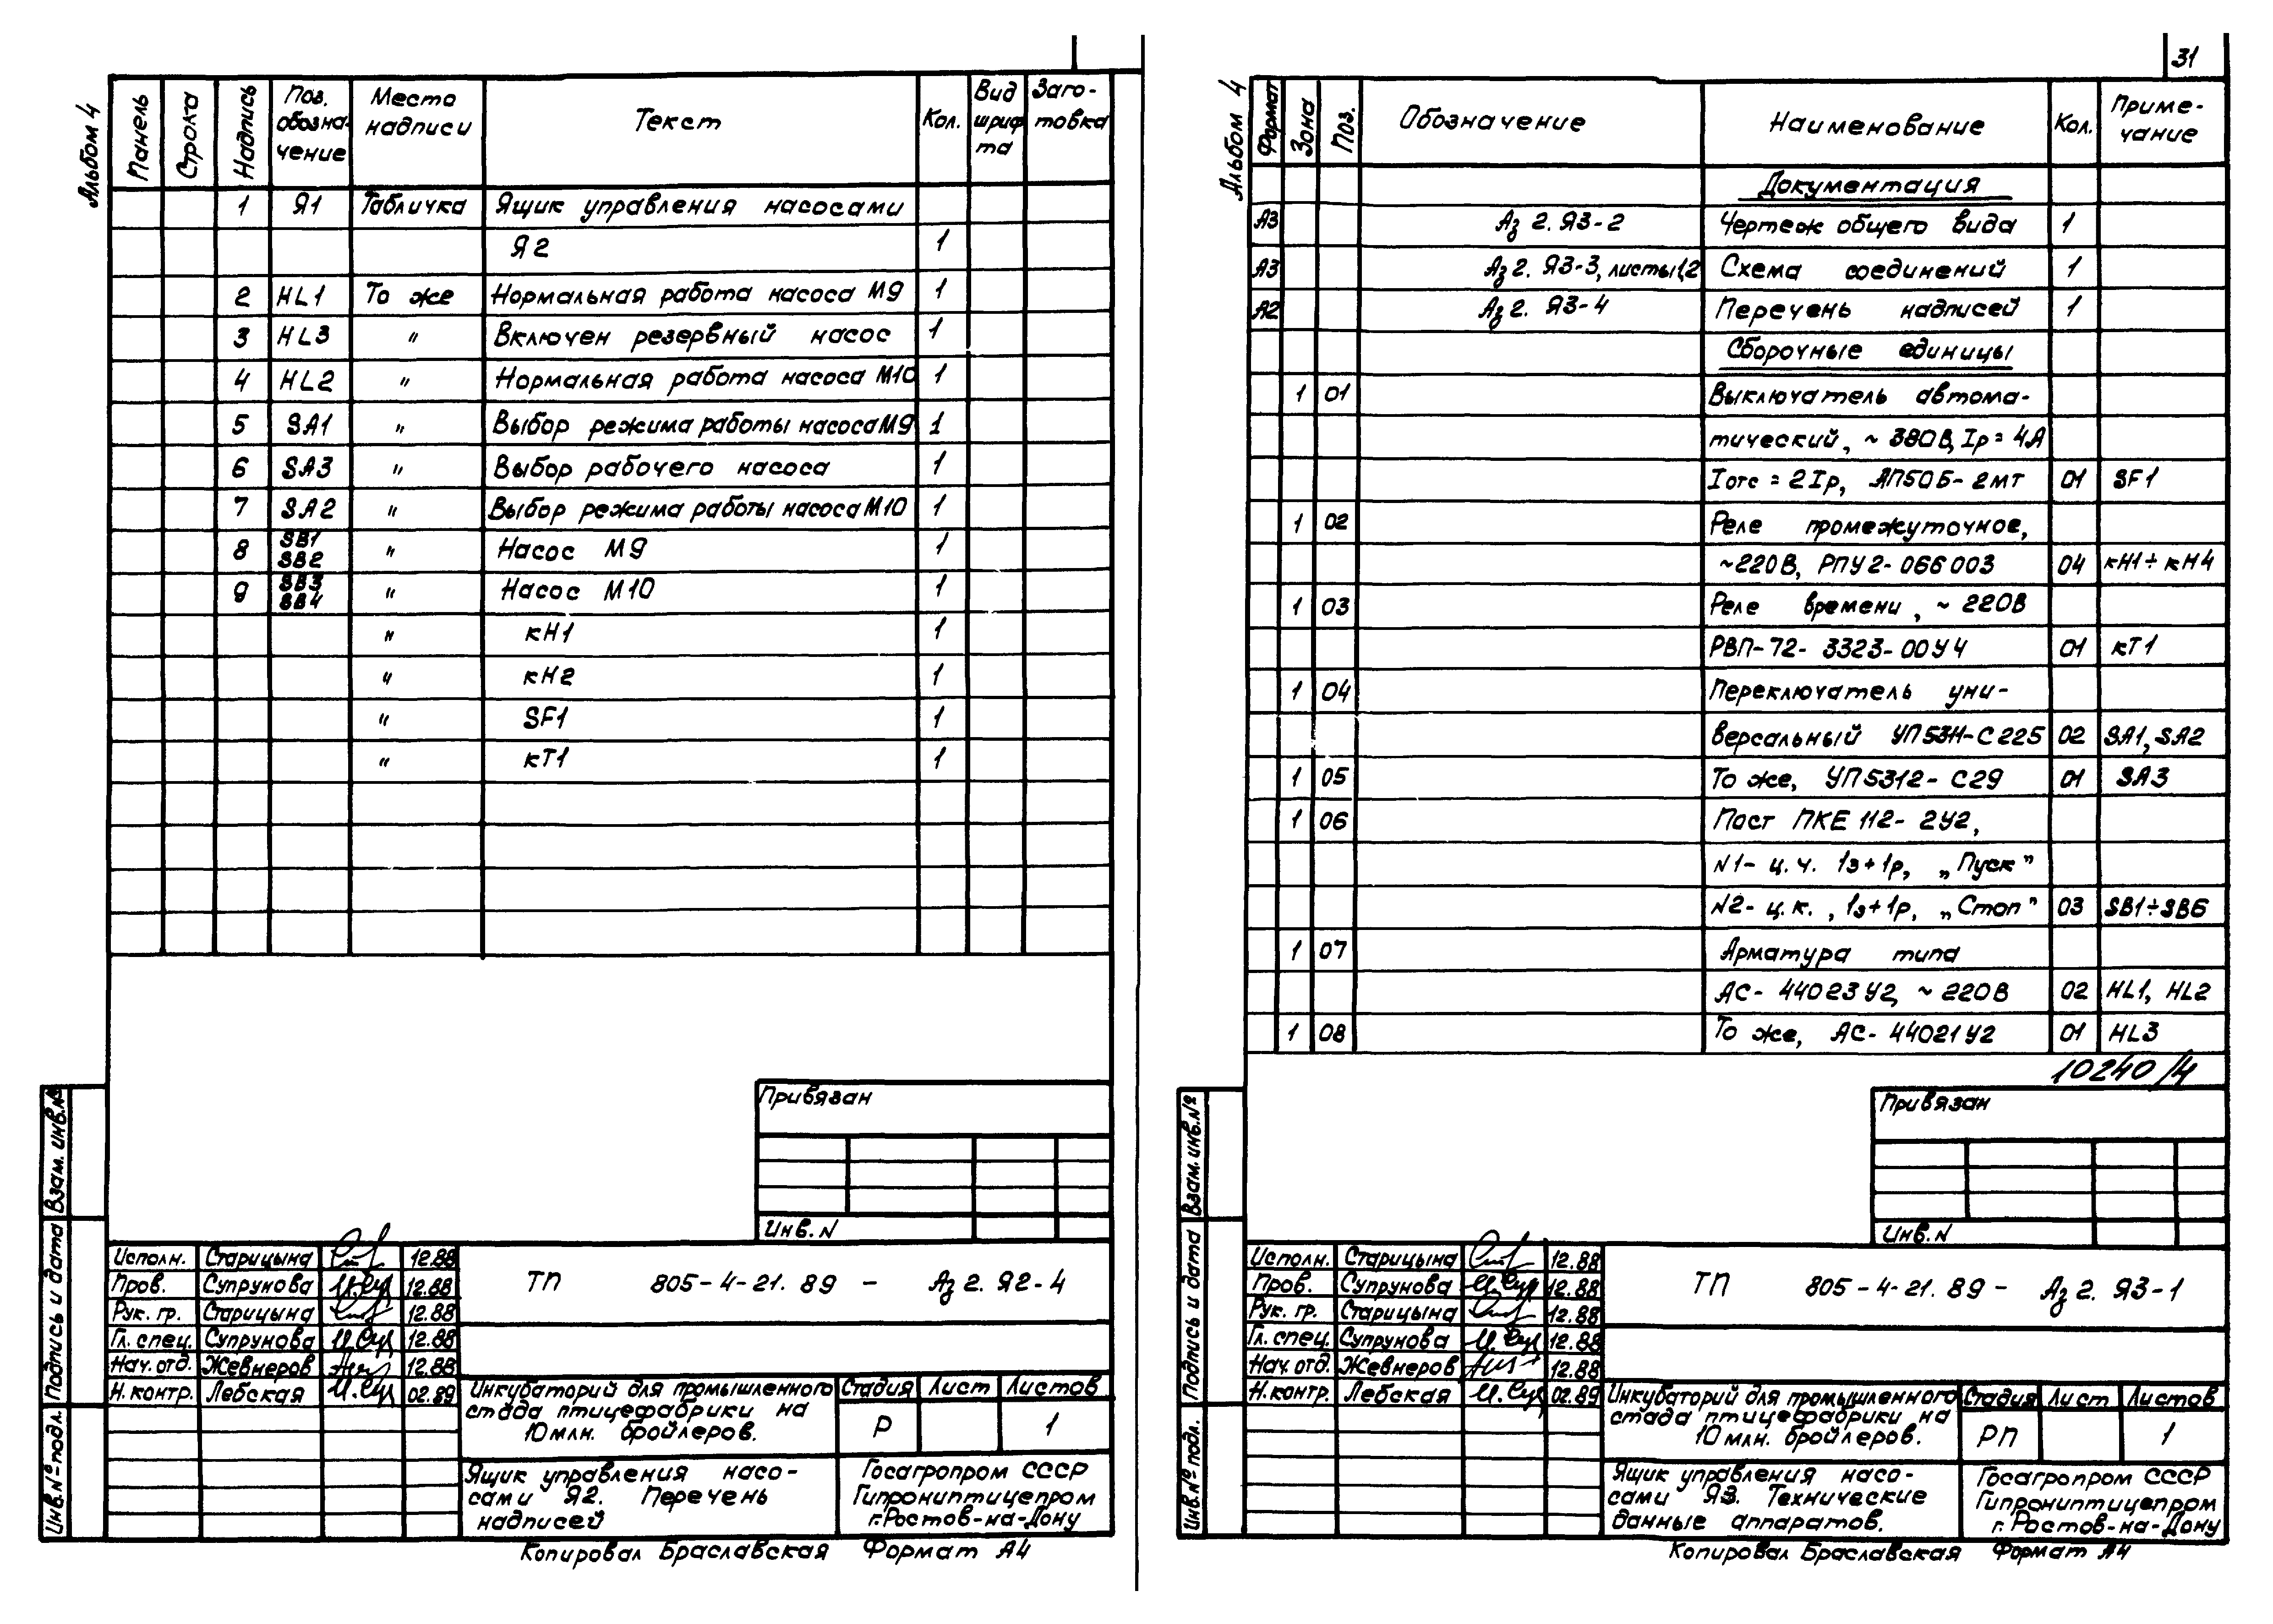 Альбом 4
Панель Строка Надпись Поз. обозна- чение Место надписи Текст Кол. Вид шриф та Заго- товка
1 Я1 Табличка Ящик управления насосами
Я2 1
2 HL1 То же Нормальная работа насоса М9 1
3 HL3 " Включен резервный насос 1
4 HL2 " Нормальная работа насоса М10 1
5 SA1 " Выбор режима работы насоса М9 1
6 SA3 " Выбор рабочего насоса 1
7 SA2 " Выбор режима работы насоса М10 1
8 SB1 SB2 " Насос М9 1
9 SB3 SB4 " Насос М10 1
" кН1 1
" кН2 1
" SF1 1
" кТ1 1
Привязан
Инв. N
Взам. инв.№
Подпись и дата
Инв.№ подл.
Исполн. Старицына 12.88
Пров. Супрунова 12.88
Рук. гр. Старицына 12.88
Гл. спец. Супрунова 12.88
Нач. отд. Жевнеров 12.88
Н. контр. Лебская 02.89
ТП 805-4-21.89 - Аз 2. Я2-4
Инкубаторий для промышленного
стада птицефабрики на
10 млн. бройлеров.
Стадия Лист Листов
Р 1
Ящик управления насо-
сами Я2. Перечень
надписей
Госагропром СССР
Гипрониптицепром
г.Ростов-на-Дону
Копировал Браславская Формат А4
31
Альбом 4
Формат Зона Поз. Обозначение Наименование Кол. Приме- чание
Документация
А3 Аз 2. Я3-2 Чертеж общего вида 1
А3 Аз 2. Я3-3, листы 1,2 Схема соединений 1
А2 Аз 2. Я3-4 Перечень надписей 1
Сборочные единицы
1 01 Выключатель автома-
тический, ~ 380В, Iр = 4А
Iотс = 2Iр, АП50Б-2МТ 01 SF1
1 02 Реле промежуточное,
~220В, РПУ2-066003 04 кН1÷кН4
1 03 Реле времени, ~ 220В
РВП-72-3323-00У4 01 кТ1
1 04 Переключатель уни-
версальный УП5311-С225 02 SA1, SA2
1 05 То же, УП5312-С29 01 SA3
1 06 Пост ПКЕ 112-2У2,
N1- ц. ч. 1з+1р, „Пуск"
N2- ц. к., 1з+1р, „Стоп" 03 SB1÷SB6
1 07 Арматура типа
АС-44023У2, ~ 220В 02 HL1, HL2
1 08 То же, АС-44021У2 01 HL3
10240/4
Привязан
Инв. N
Взам. инв.№
Подпись и дата
Инв.№ подл.
Исполн. Старицына 12.88
Пров. Супрунова 12.88
Рук. гр. Старицына 12.88
Гл. спец. Супрунова 12.88
Нач. отд. Жевнеров 12.88
Н. контр. Лебская 02.89
ТП 805-4-21.89 - Аз 2. Я3-1
Инкубаторий для промышленного
стада птицефабрики на
10 млн. бройлеров.
Стадия Лист Листов
РП 1
Ящик управления насо-
сами Я3. Технические
данные аппаратов.
Госагропром СССР
Гипрониптицепром
г. Ростов-на-Дону
Копировал Браславская Формат А4